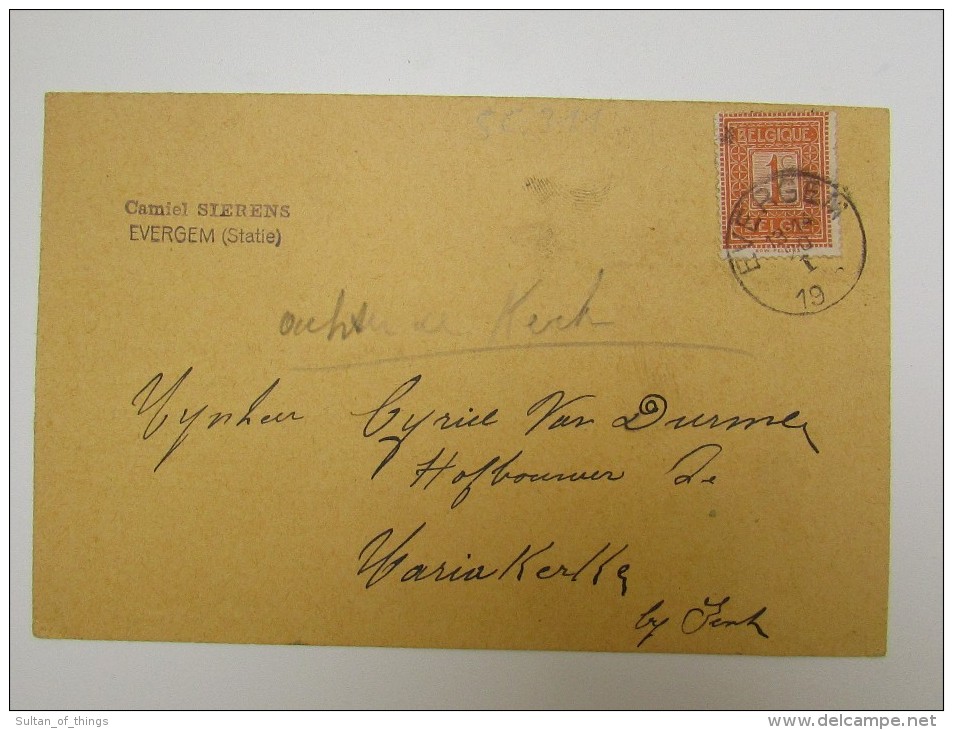 BELGIQUE
1c
BELGIË
EVERGEM
19
Camiel SIERENS
EVERGEM (Statie)
achter de Kerk
Mynheer Cyriel Van Durme
Hofbouwer Te
Mariakerke
by Gent
Sultan_of_things
www.delcampe.net